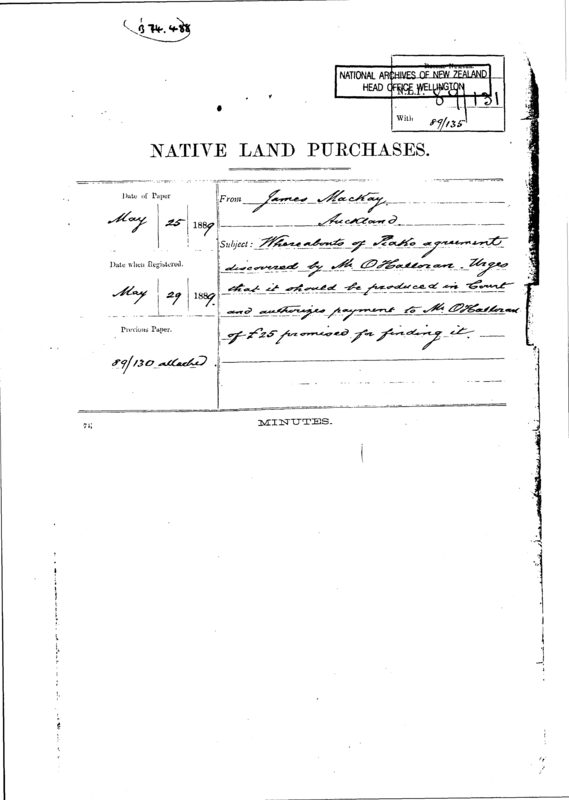 B 74.488
NATIONAL ARCHIVES OF NEW ZEALAND
HEAD OFFICE WELLINGTON
N.L.P. 89/131
With 89/135
NATIVE LAND PURCHASES.
Date of Paper
May 25 1889
Date when Registered.
May 29 1889
Previous Paper.
89/130 attached.
From James Mackay,
Auckland
Subject: Whereabouts of Piako agreement
discovered by Mr O'Halloran. Urges
that it should be produced in Court
and authorizes payment to Mr O'Halloran
of £25 promised for finding it.
MINUTES.